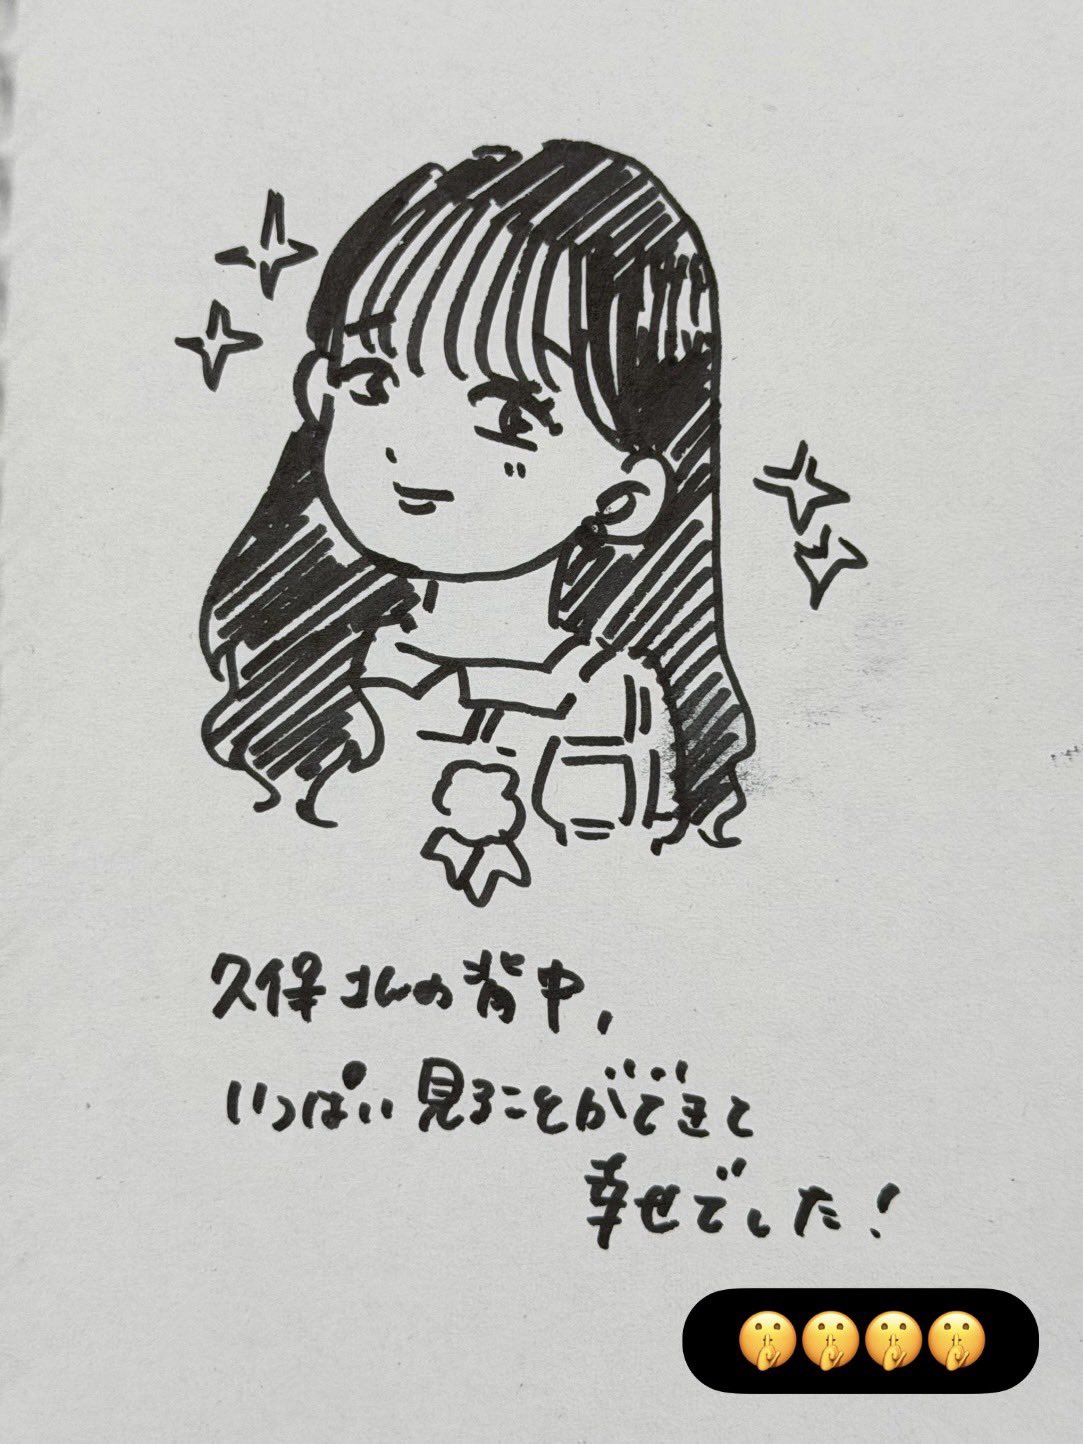 久保さんの背中,
いっぱい見ることができて
幸せでした!